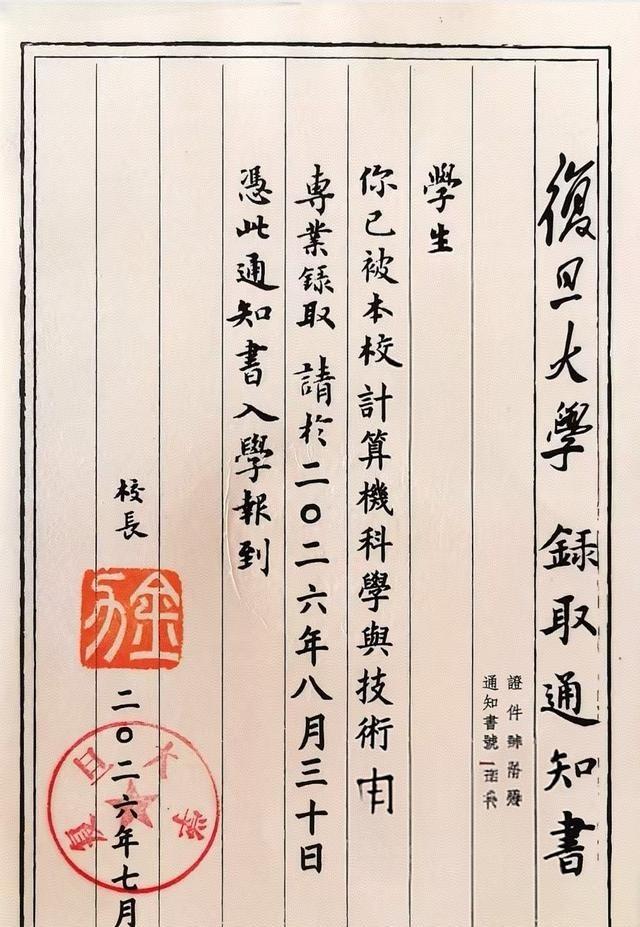 復旦大學 録取通知書
證件
通知書號
學生
你已被本校計算機科學與技術
專業録取 請於二〇二六年八月三十日
憑此通知書入學報到
校長
二〇二六年七月
復旦大学